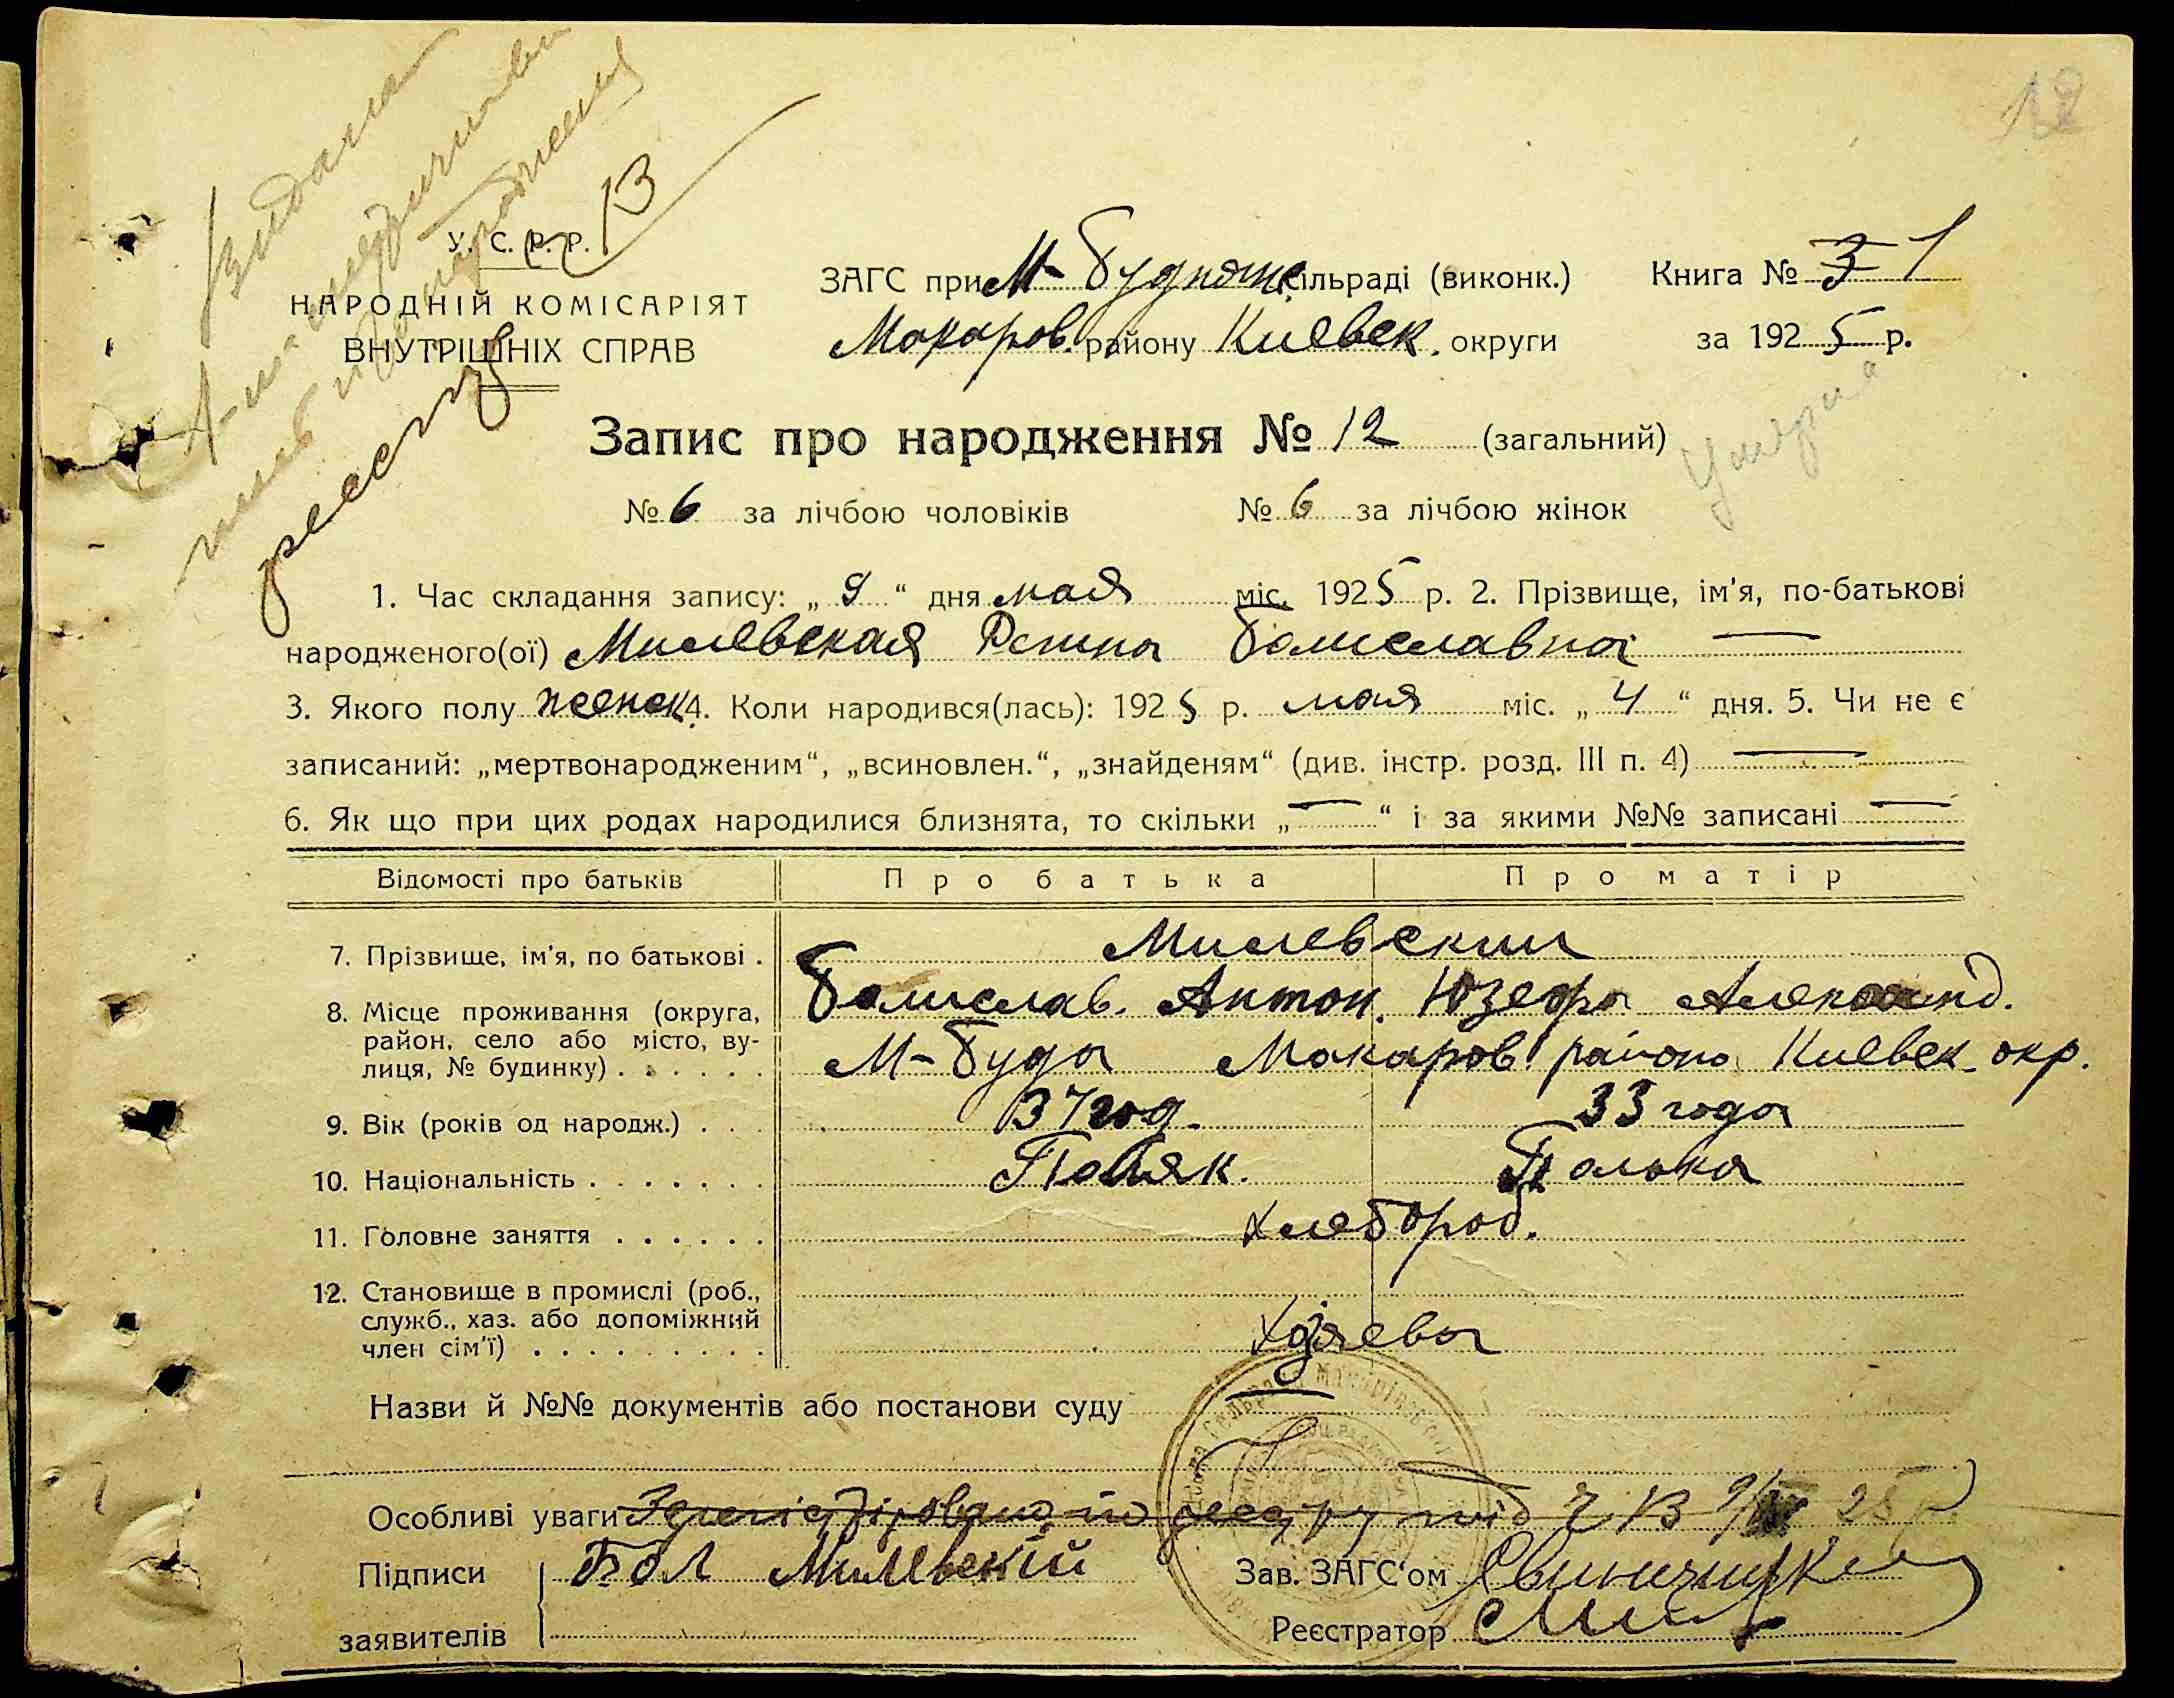 12
Видана
У. С. Р. Р.
13
НАРОДНІЙ КОМІСАРІЯТ
ВНУТРІШНІХ СПРАВ
реестр
ЗАГС при М-Будянск. сільраді (виконк.)
Книга № 3 1
Макаров. району Киевск. округи
за 1925 р.
Запис про народження № 12 (загальний)
Умерла
№ 6 за лічбою чоловіків № 6 за лічбою жінок
1. Час складання запису: „ 9 “ дня мая міс. 1925 р. 2. Прізвище, ім’я, по-батькові
народженого(ої) Милевская Регина Болиславна —
3. Якого полу женск. 4. Коли народився(лась): 1925 р. мая міс. „ 4 “ дня. 5. Чи не є
записаний: „мертвонародженим“, „всиновлен.“, „знайденям“ (див. інстр. розд. III п. 4) —
6. Як що при цих родах народилися близнята, то скільки „ — “ і за якими №№ записані —
Відомості про батьків Про батька Про матір
7. Прізвище, ім’я, по батькові . Милевский
Болислав. Антон. Юзефа Александ.
8. Місце проживання (округа,
район, село або місто, ву-
лиця, № будинку) . . . . . . М-Буда Макаров района Киевск. окр.
9. Вік (років од народж.) . . . 37 год. 33 года
10. Національність . . . . . . . Поляк. Полька
11. Головне заняття . . . . . . Хлебород.
12. Становище в промислі (роб.,
служб., хаз. або допоміжний
член сім’ї) . . . . . . . . . Хозяева
Назви й №№ документів або постанови суду
Особливі уваги Зерегістріровано по реестру під Ч 13 25 р.
Підписи Бол Милевскій
Зав. ЗАГС’ом
заявителів
Реєстратор